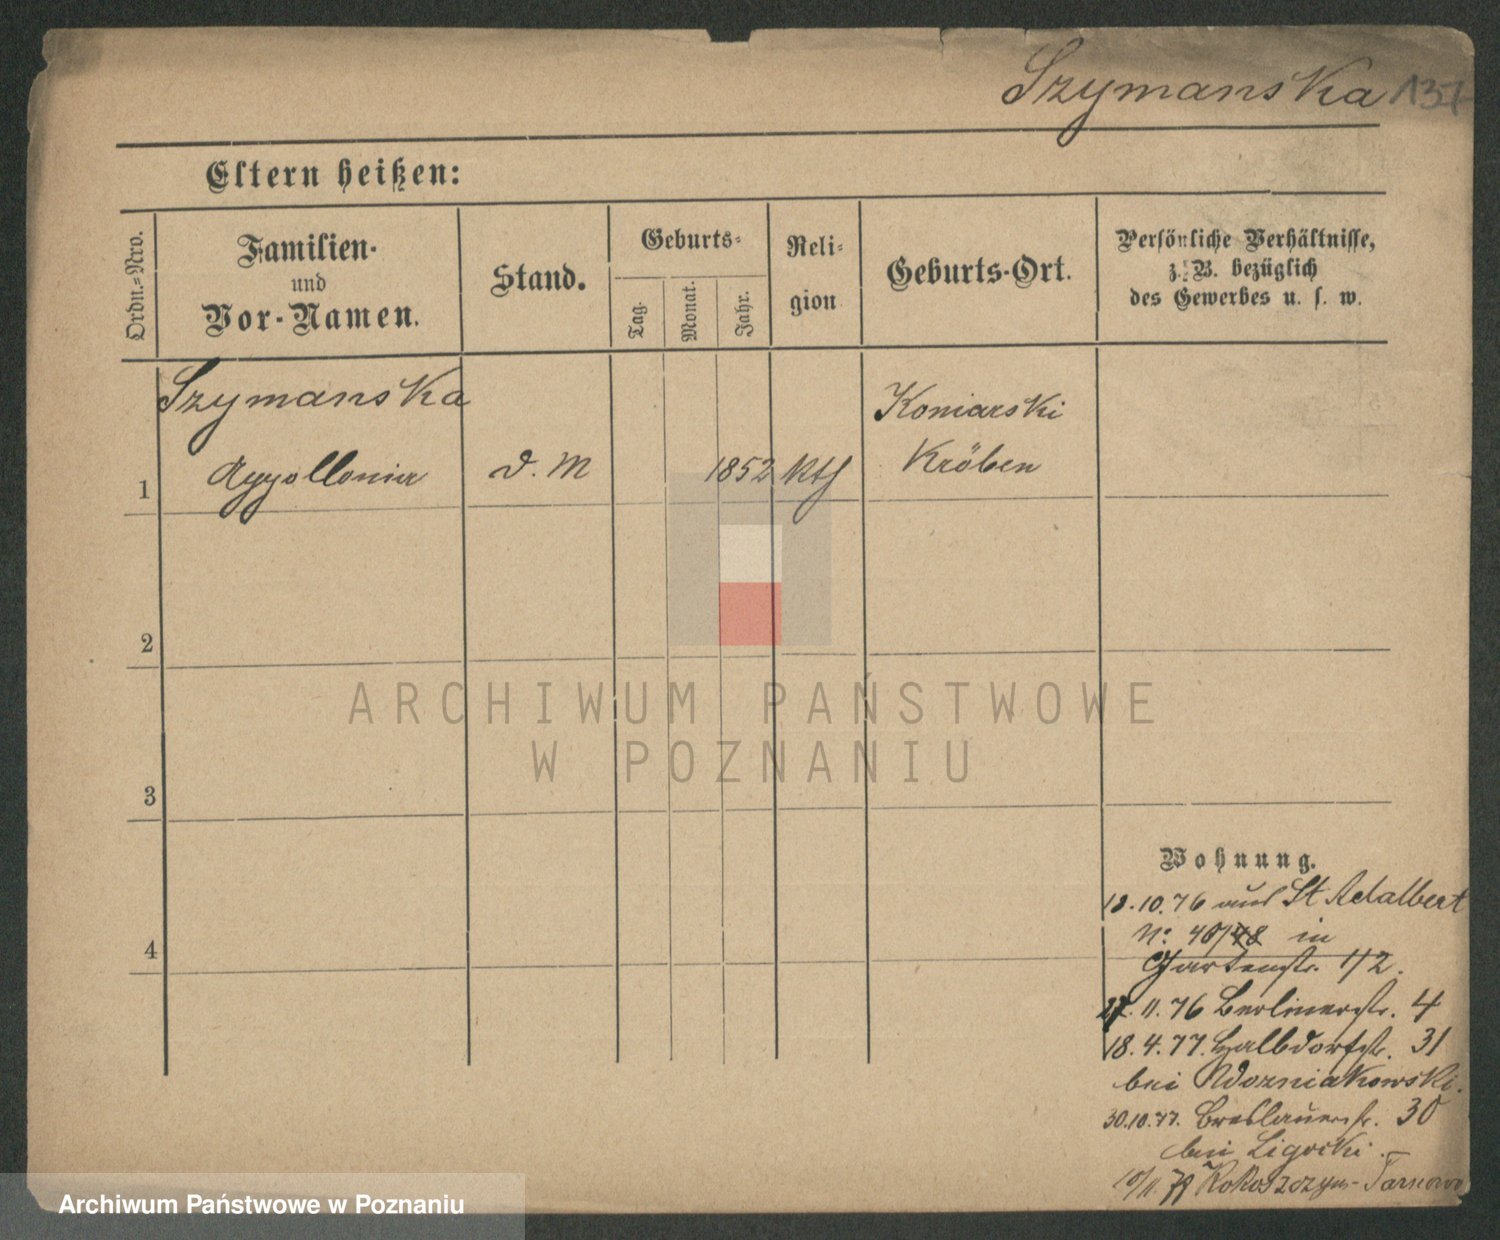 Szymanska 137
Eltern heißen:
Ordn.=Nro.
Familien-
und
Vor-Namen.
Stand.
Geburts-
Tag.
Monat.
Jahr.
Reli-
gion
Geburts-Ort.
Persönliche Verhältnisse,
z. B. bezüglich
des Gewerbes u. s. w.
Szymanska Koniarski
1 Appollonia d. M 1852 kth Kröben
2
3
4
ARCHIWUM PAŃSTWOWE
W POZNANIU
Wohnung.
12.10.76 aus St Adalbert
No. 40/48 in
Gartenstr. 1/2.
27.11.76 Berlinerstr. 4
18.4.77. Halbdorfstr. 31
bei Wozniakowski.
30.10.77. Breslauerstr. 30
bei Ligocki.
10/11. 79 Kokoszczyn-Tarnowo
Archiwum Państwowe w Poznaniu